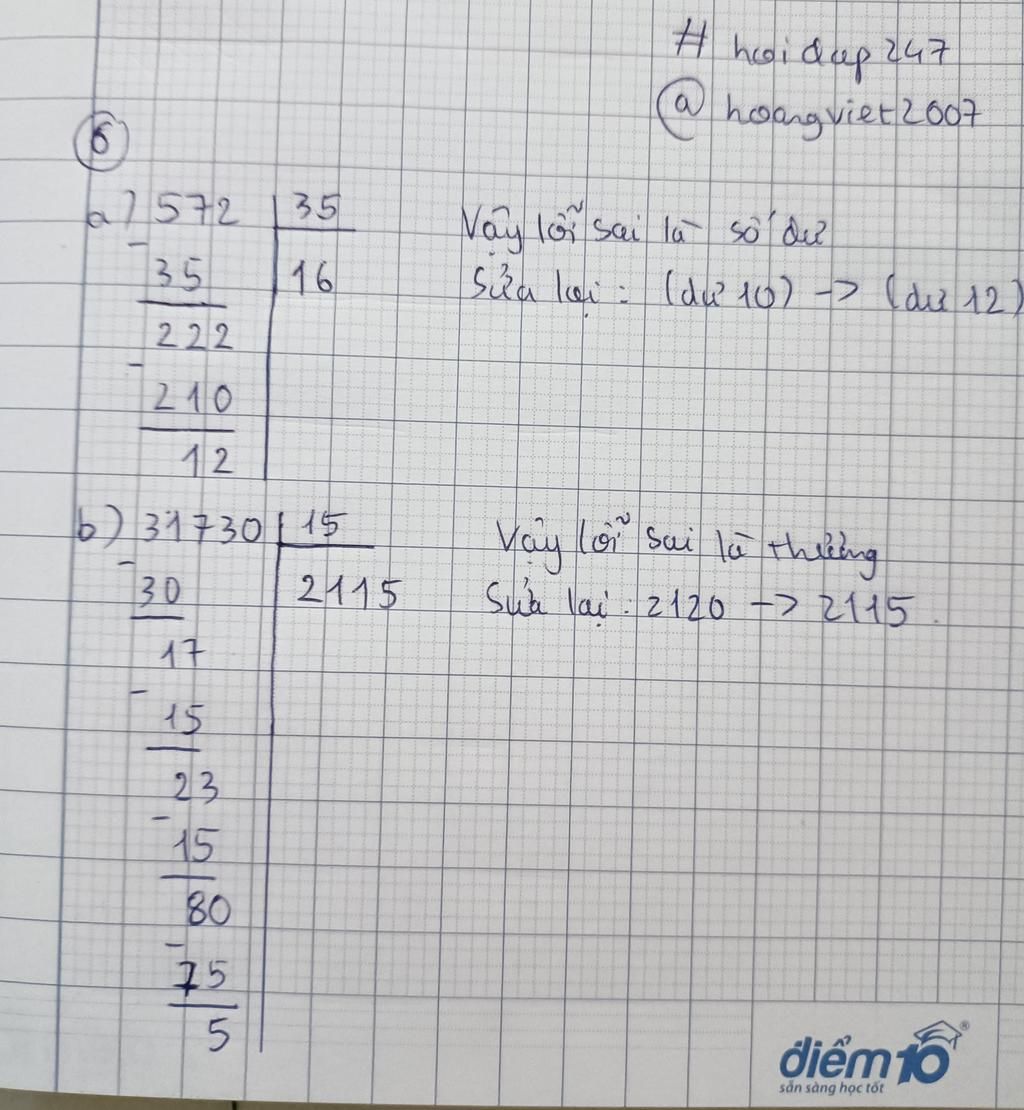 # hoidap247
@ hoangviet2007
6
a) 572 35
- 35 16
222
- 210
12
Vậy lỗi sai là số dư
Sửa lại : (dư 10) -> (dư 12)
b) 31730 15
- 30 2115
17
- 15
23
- 15
80
- 75
5
Vậy lỗi sai là thương
Sửa lại : 2120 -> 2115.
điểm10®
sẵn sàng học tốt